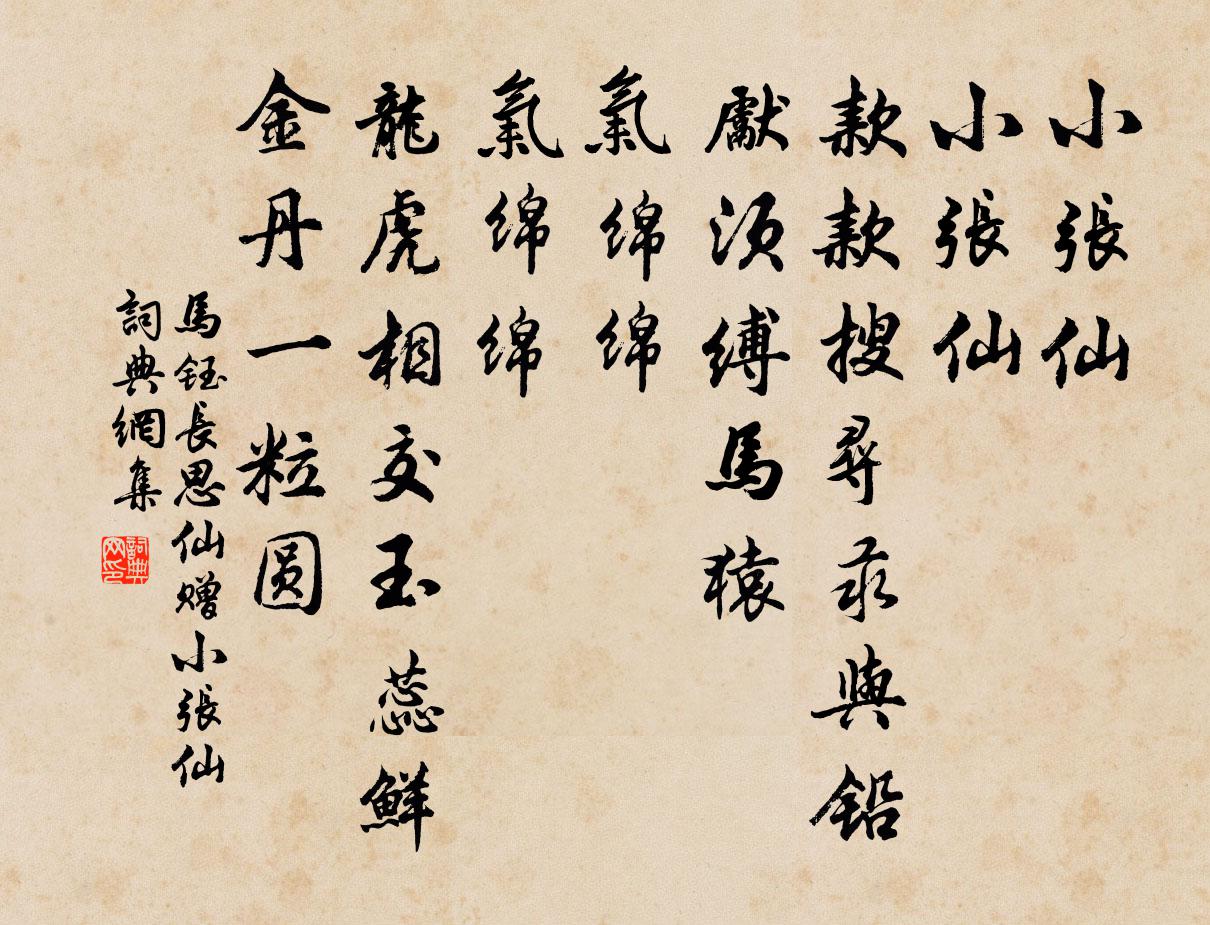 小張仙
小張仙
款款搜尋汞與鉛
獻須縛馬猿
氣綿綿
氣綿綿
龍虎相交玉蕊鮮
金丹一粒圓
馬鈺長思仙贈小張仙
詞典網集
詞典网印